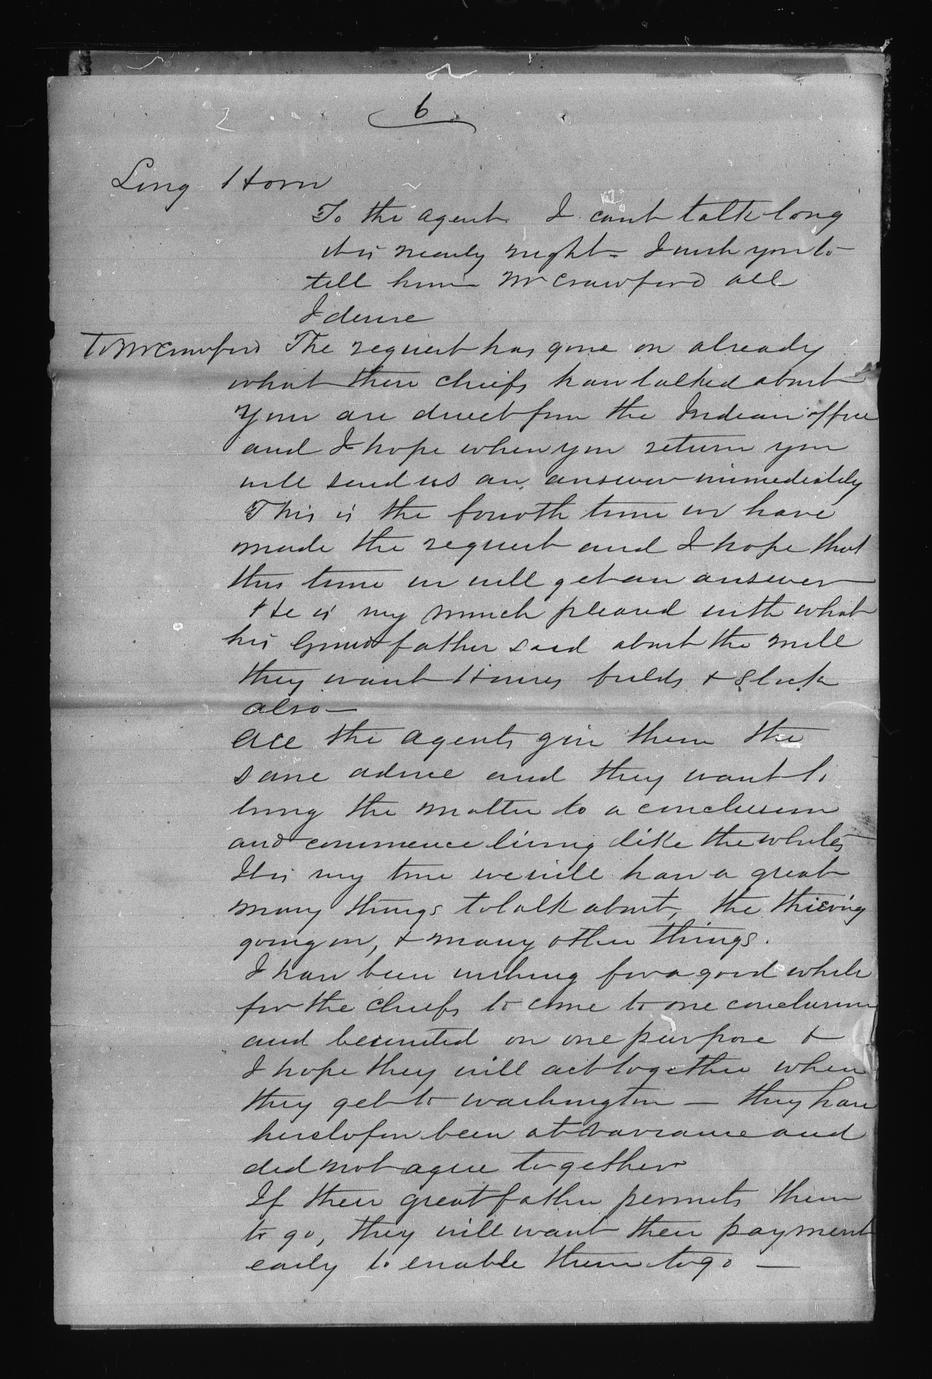 6
Long Horn
To the agent. I cant talk long
it is nearly night - I wish you to
tell him Mr Crawford all
I desire
To Mr Crawford The request has gone on already
what these chiefs have talked about
You are direct from the Indian office
and I hope when you return you
will send us an answer immediately
This is the fourth time we have
made the request and I hope that
this time we will get an answer
He is very much pleased with what
his Grandfather said about the mill
they want Houses fields & Stock
also -
All the agents give them the
same advice and they want to
bring the matter to a conclusion
and commence living like the whites
It is my time we will have a great
many things to talk about, the thieving
going on, & many other things.
I have been wishing for a good while
for the chiefs to come to one conclusion
and be united on one purpose &
I hope they will act together when
they get to Washington - they have
heretofore been at variance and
did not agree together
If their great father permits them
to go, they will want their payment
early to enable them to go -